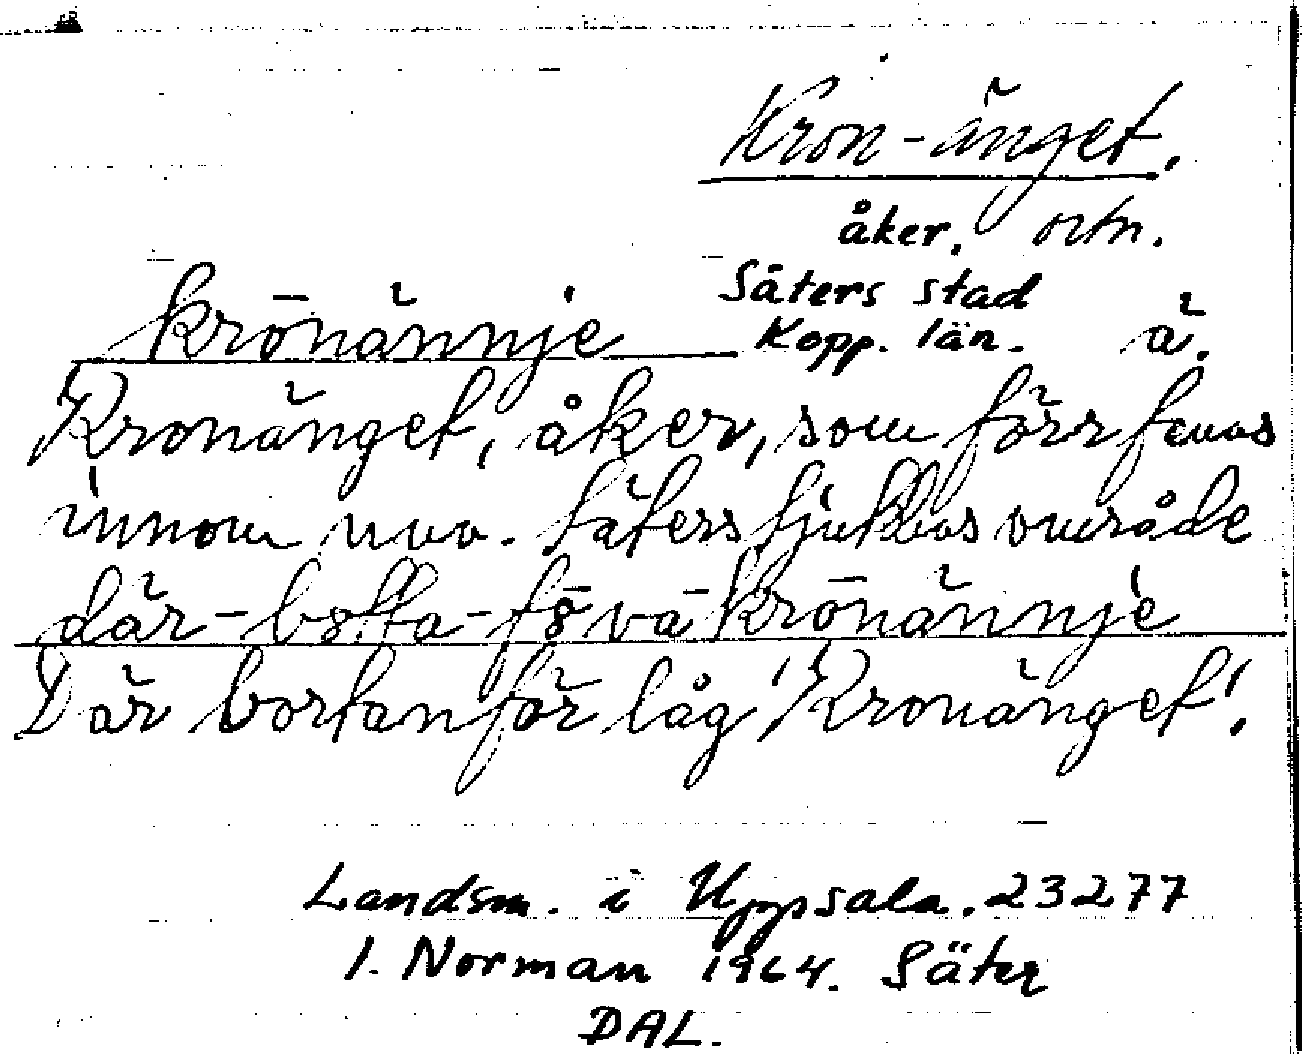 Kron-änget.
åker. ortn.
Säters stad
krōnännje Kopp. län. ä.
Kronänget, åker, som förr fanns
innom nuv. Säters sjukhus område
där-bȣtta-fȣ̄ vā krōnännje
Där bortanför låg "Kronänget".
Landsm. i Uppsala. 23277
I. Norman 1964. Säter
DAL.